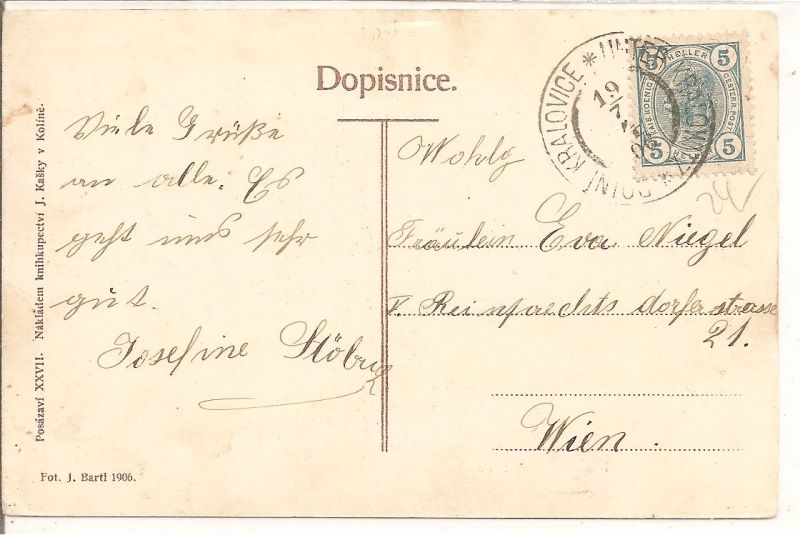 Dopisnice.
Viele Grüße
an alle. Es
geht uns sehr
gut.
Josefine
Wohlg
Fräulein Eva Niegel
V. Reinprechtsdorferstrasse
21.
Wien.
5 HELLER 5
KAIS. KOENIG. OESTERR. POST
5 5
DOLNÍ KRALOVICE * UNTER KRALOWITZ *
19
Posázaví XXVII. Nákladem knihkupectví J. Kašky v Kolíně.
Fot. J. Bartl 1906.